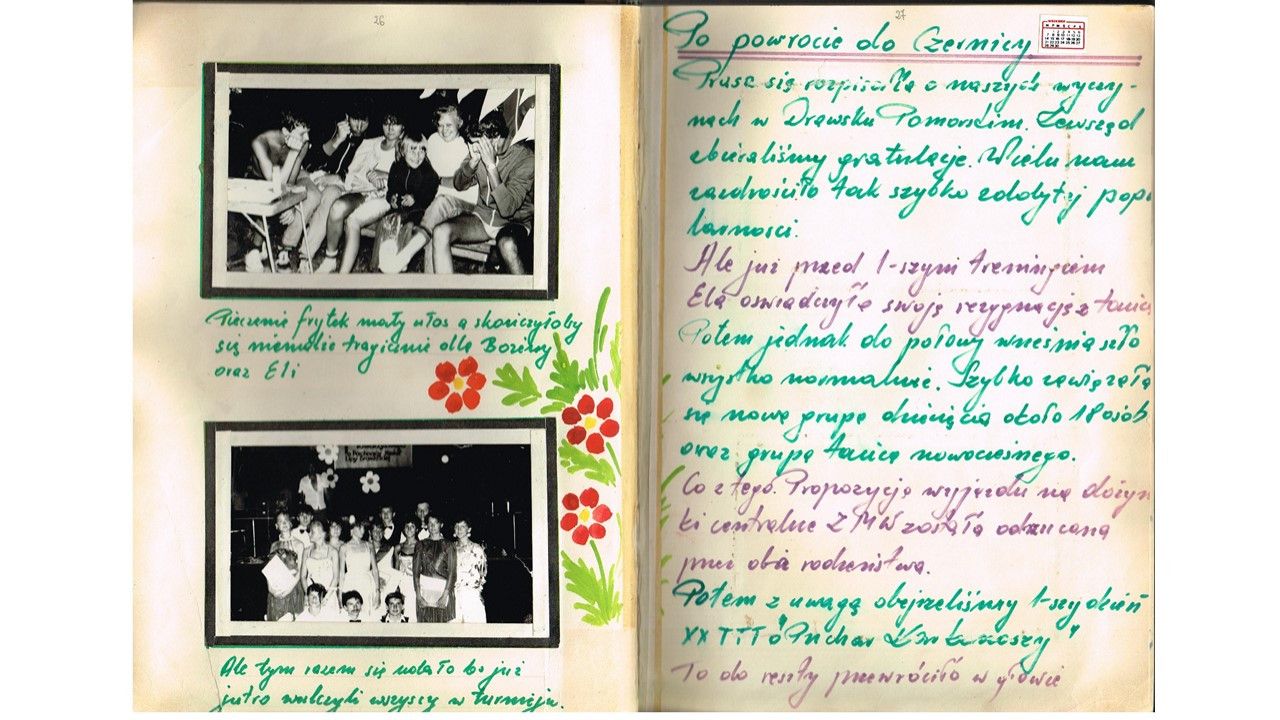 26
Pieczenie frytek mały włos a skończyłoby
się niemalże tragicznie dla Bożeny
oraz Eli
Ale tym razem się udało bo już
jutro walczyli wszyscy w turnieju.
27
Po powrocie do Czernicy
Prasa się rozpisała o naszych wyczy-
nach w Drawsku Pomorskim. Zewsząd
zbieraliśmy gratulacje. Wielu nam
zazdrościło tak szybko zdobytej popu
larności.
Ale już przed 1-szym treningiem
Ela oświadczyła swoją rezygnację z tańca
Potem jednak do połowy września szło
wszystko normalnie. Szybko zawiązała
się nowa grupa dziecięca około 18 osób
oraz grupa tańca nowoczesnego.
Co z tego. Propozycja wyjazdu na dożyn
ki centralne ZMW została odrzucona
przez oba rodzeństwa.
Potem z uwagą obejrzeliśmy 1-szy dzień
XX TTTo "Puchar
To do reszty przewróciło w głowie